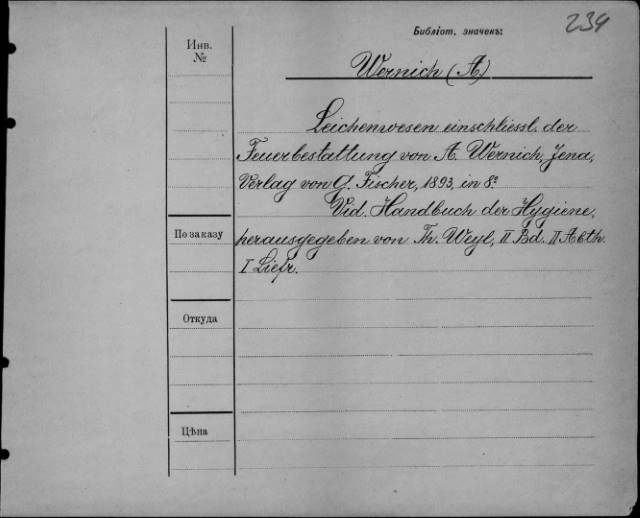 Библіот. значенъ:
234
Инв.
№
Wernich (A)
Leichenwesen einschliessl. der
Feuerbestattung von A. Wernich, Jena,
Verlag von G. Fischer, 1893, in 8º
Vid. Handbuch der Hygiene,
herausgegeben von Th. Weyl, II Bd. II Abth.
I Liefr.
По заказу
Откуда
Цѣна